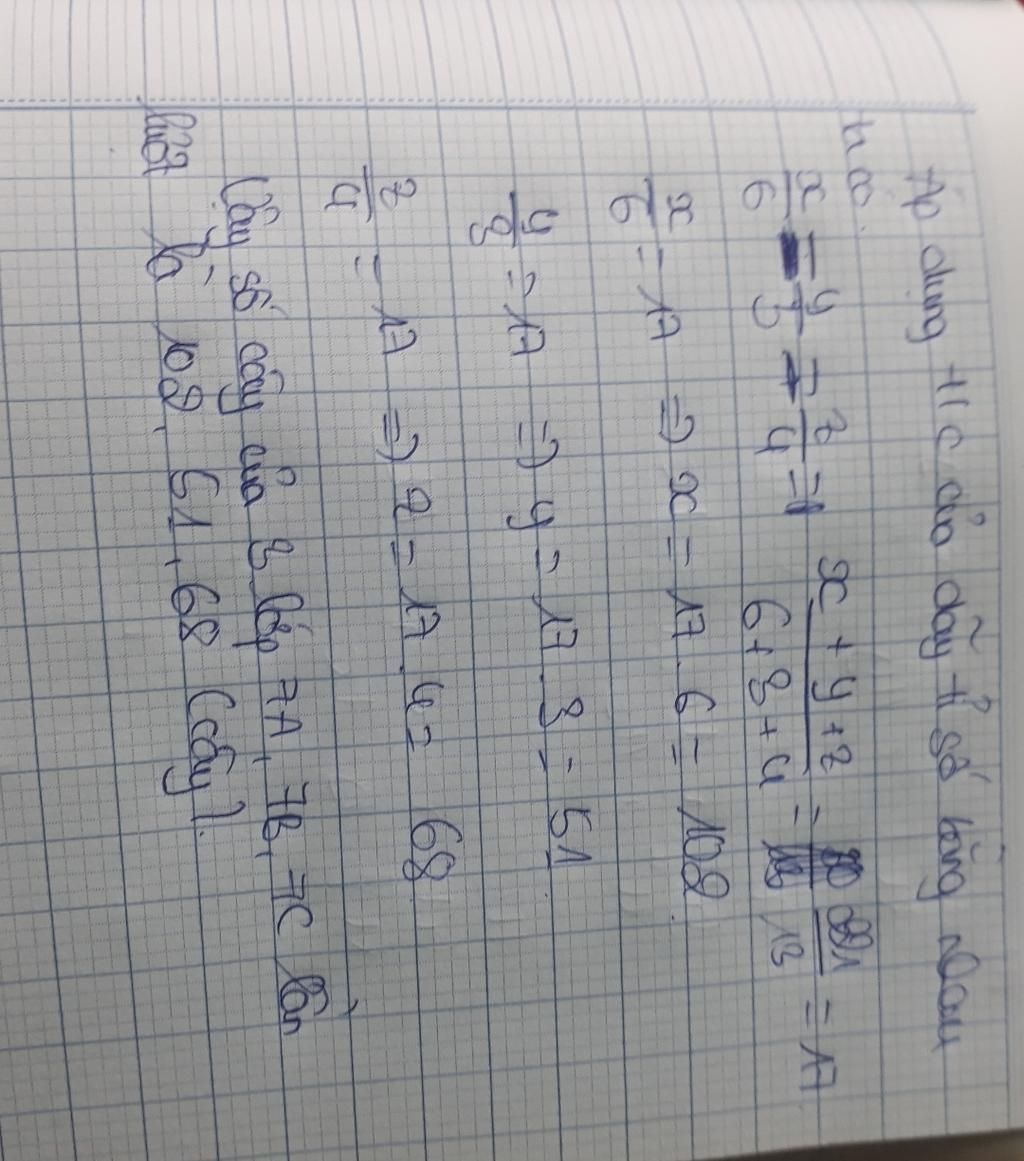 Áp dụng t/c của dãy tỉ số bằng nhau
ta có
x/6 = y/3 = z/4 = x + y + z / 6 + 3 + 4 = 221/13 = 17
x/6 = 17 => x = 17 . 6 = 102
y/3 = 17 => y = 17 . 3 = 51
z/4 = 17 => z = 17 . 4 = 68
Vậy số cây của 3 lớp 7A, 7B, 7C lần
lượt là 102, 51, 68 (cây).